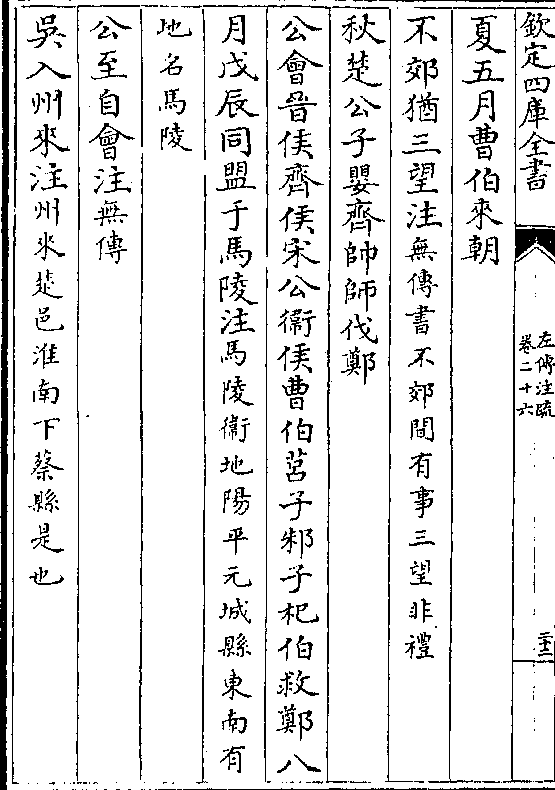 欽定四庫全書
左傳注疏
卷二十六
三十三
夏五月曹伯來朝
不郊猶三望注無傳書不郊間有事三望非禮
秋楚公子嬰齊帥師伐鄭
公會晉侯齊侯宋公衞侯曹伯莒子邾子杞伯救鄭八
月戊辰同盟于馬陵注馬陵衞地陽平元城縣東南有
地名馬陵
公至自會注無傳
吳入州來注州來楚邑淮南下蔡縣是也